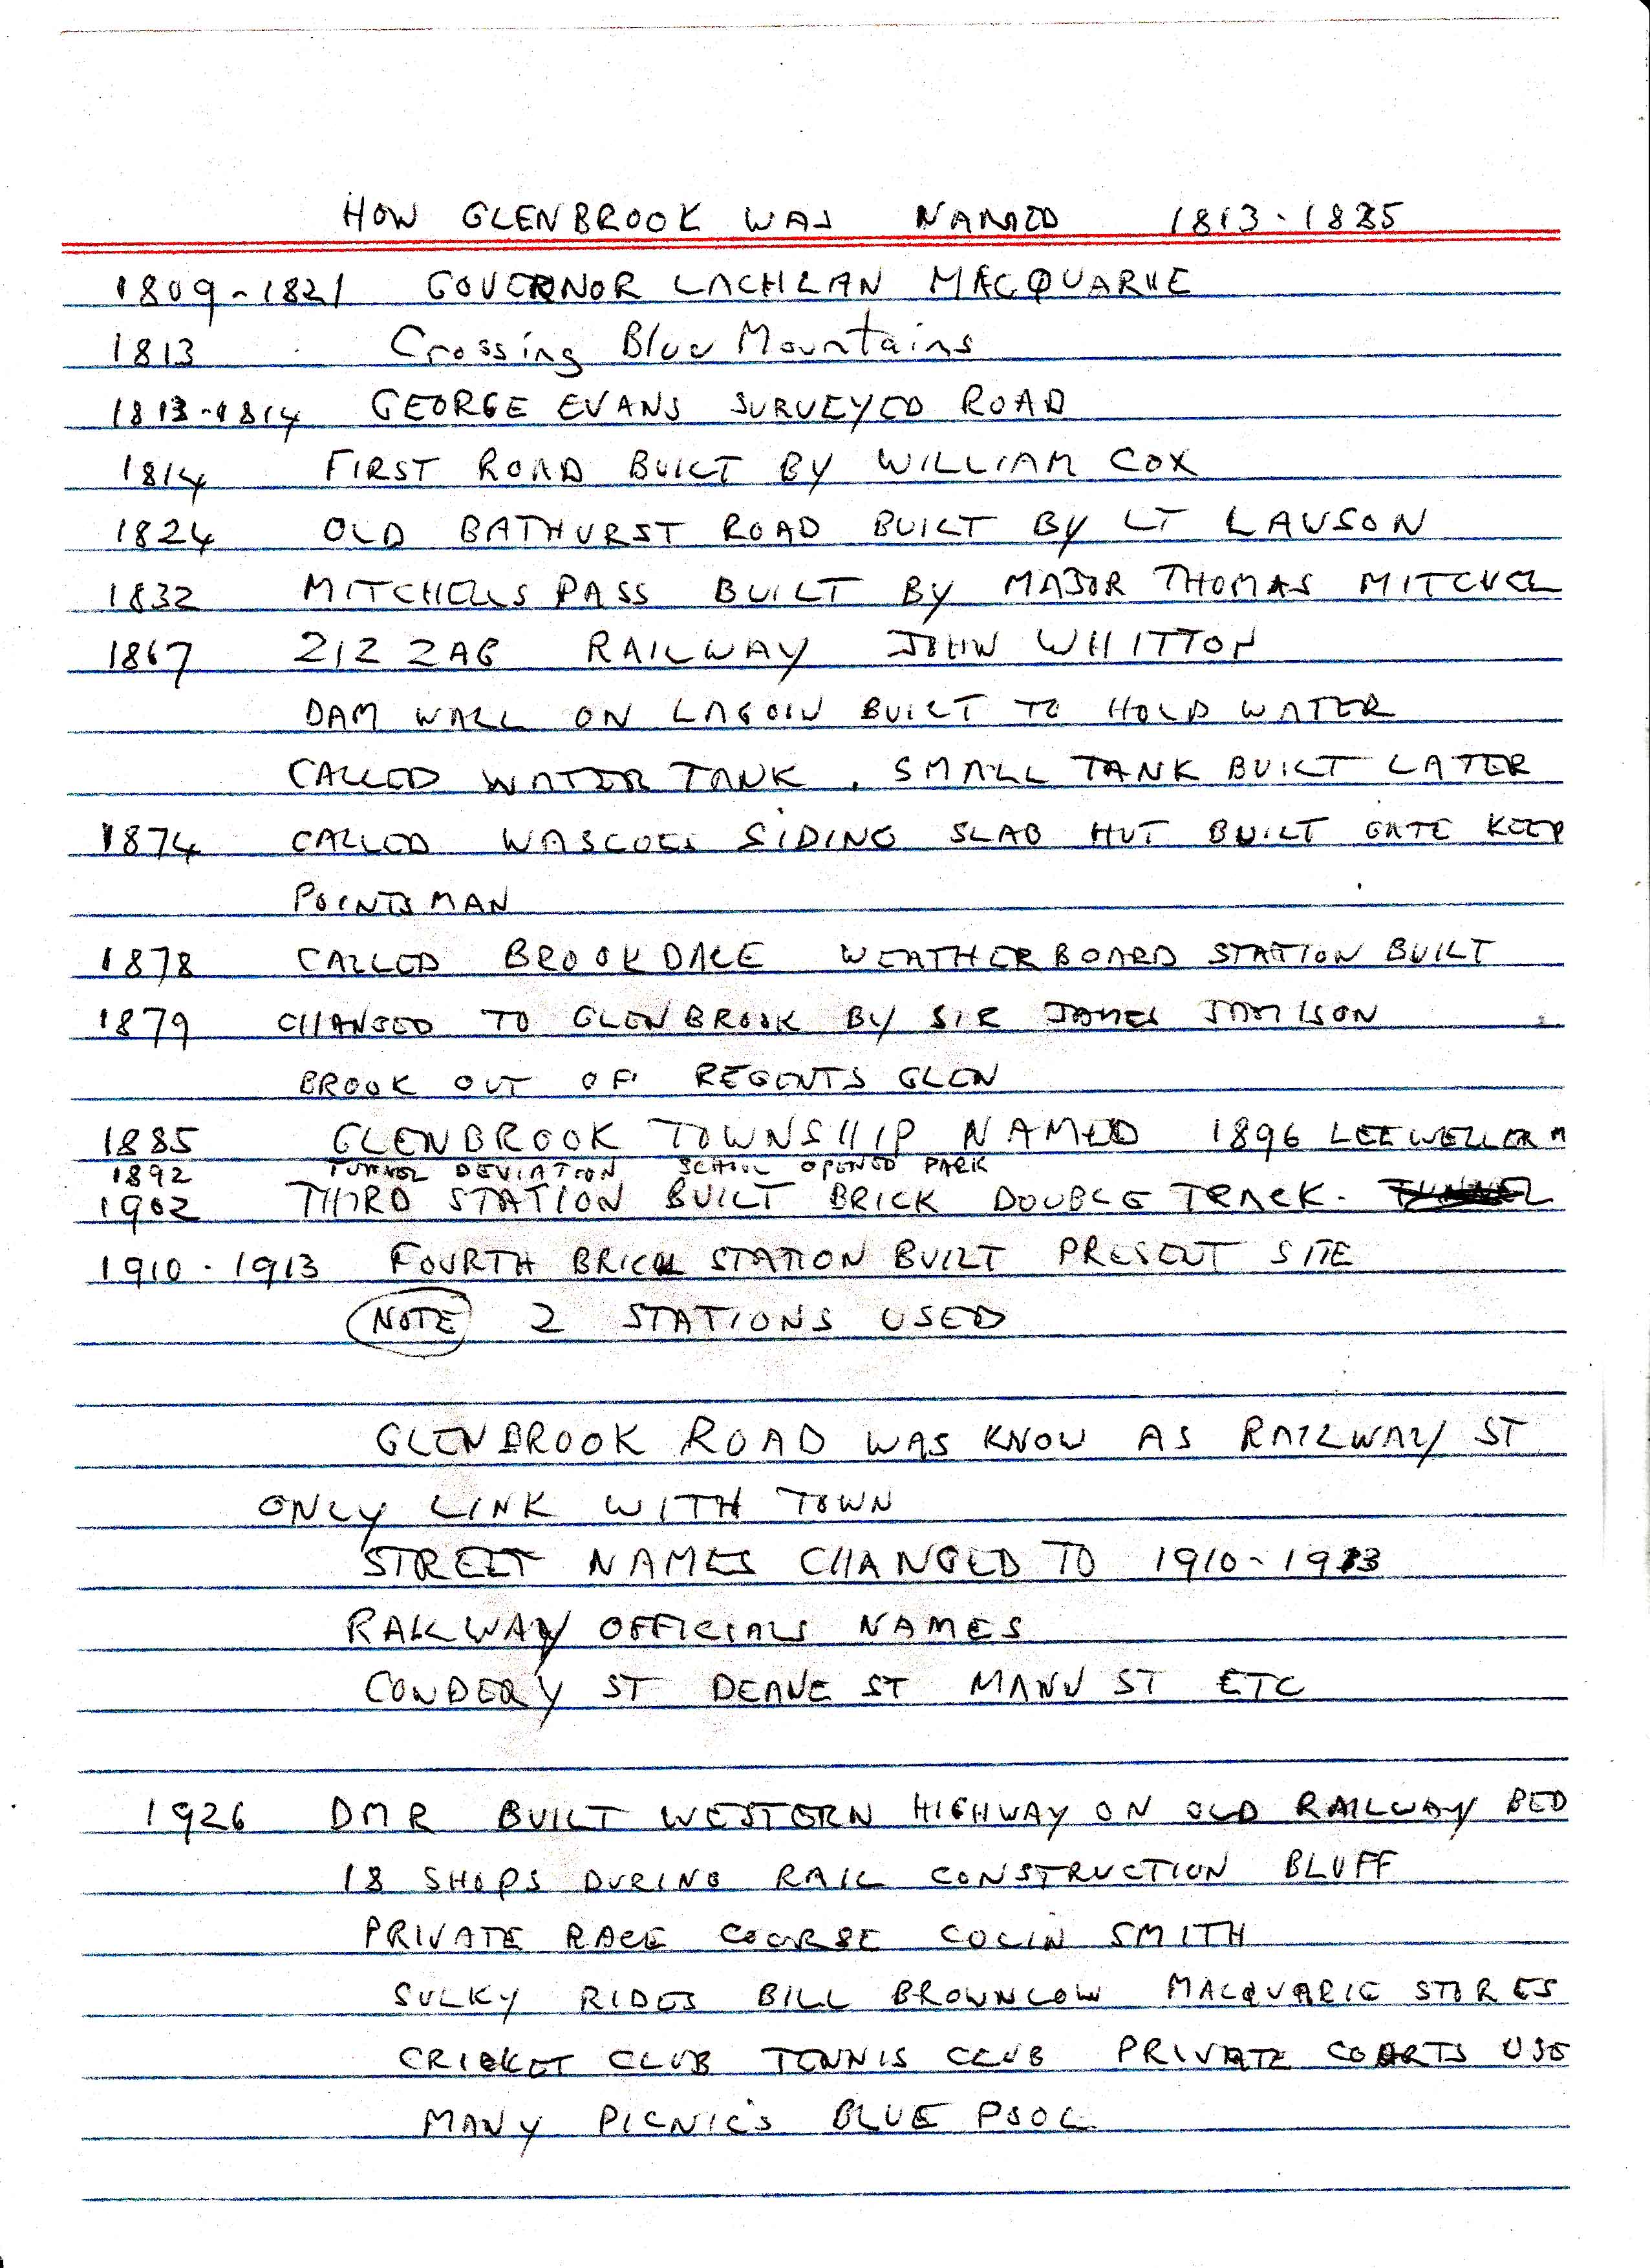 HOW GLENBROOK WAS NAMED 1813-1885
1809-1821 GOVERNOR LACHLAN MACQUARIE
1813 Crossing Blue Mountains
1813-1814 GEORGE EVANS SURVEYED ROAD
1814 FIRST ROAD BUILT BY WILLIAM COX
1824 OLD BATHURST ROAD BUILT BY LT LAWSON
1832 MITCHELLS PASS BUILT BY MAJOR THOMAS MITCHEL
1867 ZIZ ZAG RAILWAY JOHN WHITTON
DAM WALL ON LAGOIN BUILT TO HOLD WATER
CALLED WATER TANK. SMALL TANK BUILT LATER
1874 CALLED WASCOES SIDING SLAB HUT BUILT GATE KEEP
POINTSMAN
1878 CALLED BROOKDALE WEATHERBOARD STATION BUILT
1879 CHANGED TO GLENBROOK BY SIR JAMES JAMISON
BROOK OUT OF REGENTS GLEN
1885 GLENBROOK TOWNSHIP NAMED 1896 LEEWELLER M
1892 TUNNEL DEVIATION SCHOOL OPENED PARK
1902 THIRD STATION BUILT BRICK DOUBLE TRACK. TUNNEL
1910-1913 FOURTH BRICK STATION BUILT PRESENT SITE
NOTE 2 STATIONS USED
GLENBROOK ROAD WAS KNOW AS RAILWAY ST
ONLY LINK WITH TOWN
STREET NAMES CHANGED TO 1910-1913
RAILWAY OFFICIALS NAMES
CONDERY ST DEANE ST MANN ST ETC
1926 DMR BUILT WESTERN HIGHWAY ON OLD RAILWAY BED
18 SHOPS DURING RAIL CONSTRUCTION BLUFF
PRIVATE RACE COURSE COLIN SMITH
SULKY RIDES BILL BROWNLOW MACQUARIE STORES
CRICKET CLUB TENNIS CLUB PRIVATE COURTS USE
MANY PICNIC'S BLUE POOL